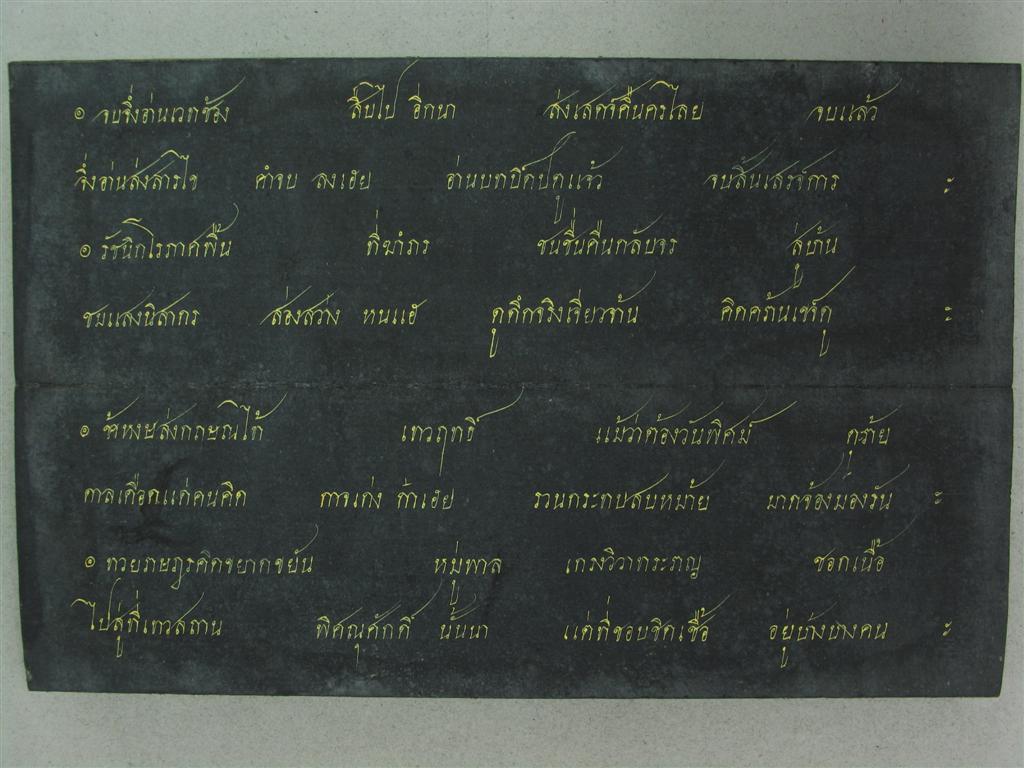 ๏ จบจึ่งอ่านเวทซ้อง สืบไป อีกนา ส่งเสดจคืนครไลย จบแล้ว
จึ่งอ่านส่งสารไข คำจบ ลงเฮย อ่านบทปิดปตูแจ้ว จบสิ้นเสรจ์การ ะ
๏ รัชนิกโรภาศพื้น ที่ฆำภร ชนชื่นคืนกลับจร สู่บ้าน
ชมแสงนิสากร ส่องสว่าง หนแฮ ดูดึกจริงเจี่ยวจ้าน คิดคร้านเชร์ดู ะ
๏ ช้าหงษส่งกฤษณไท้ เทวฤทธิ์ แม้ว่าต้องวันพิศม์ ดุร้าย
กาลเดือดแก่คนคิด กาจเก่ง ก้าเฮย รวนกระทบสบหม้าย มากจ้องมองรัน ะ
๏ ทวยราษฎรคิดขยาดขยัน หมู่พาล เกรงวิวาทระราญ ชอกเนื้อ
ไปสู่ที่เทวสถาน พิศณุศักดิ์ นั้นนา แด่ที่ชอบชิดเชื้อ อยู่บ้างบางคน ะ